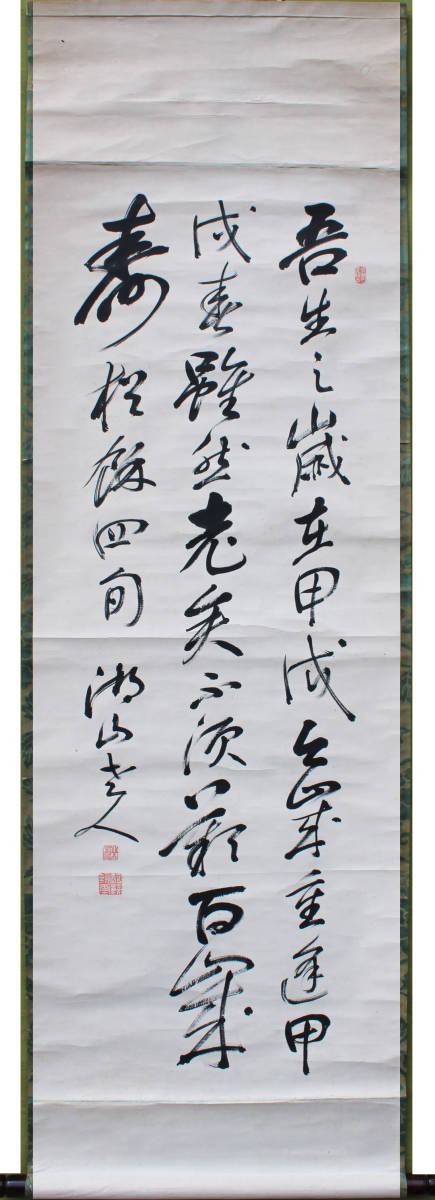 吾生之歳在甲戌今歳重逢甲
戌春雖然老矣不須歎百歳
寿猶餘四旬 湖山老人